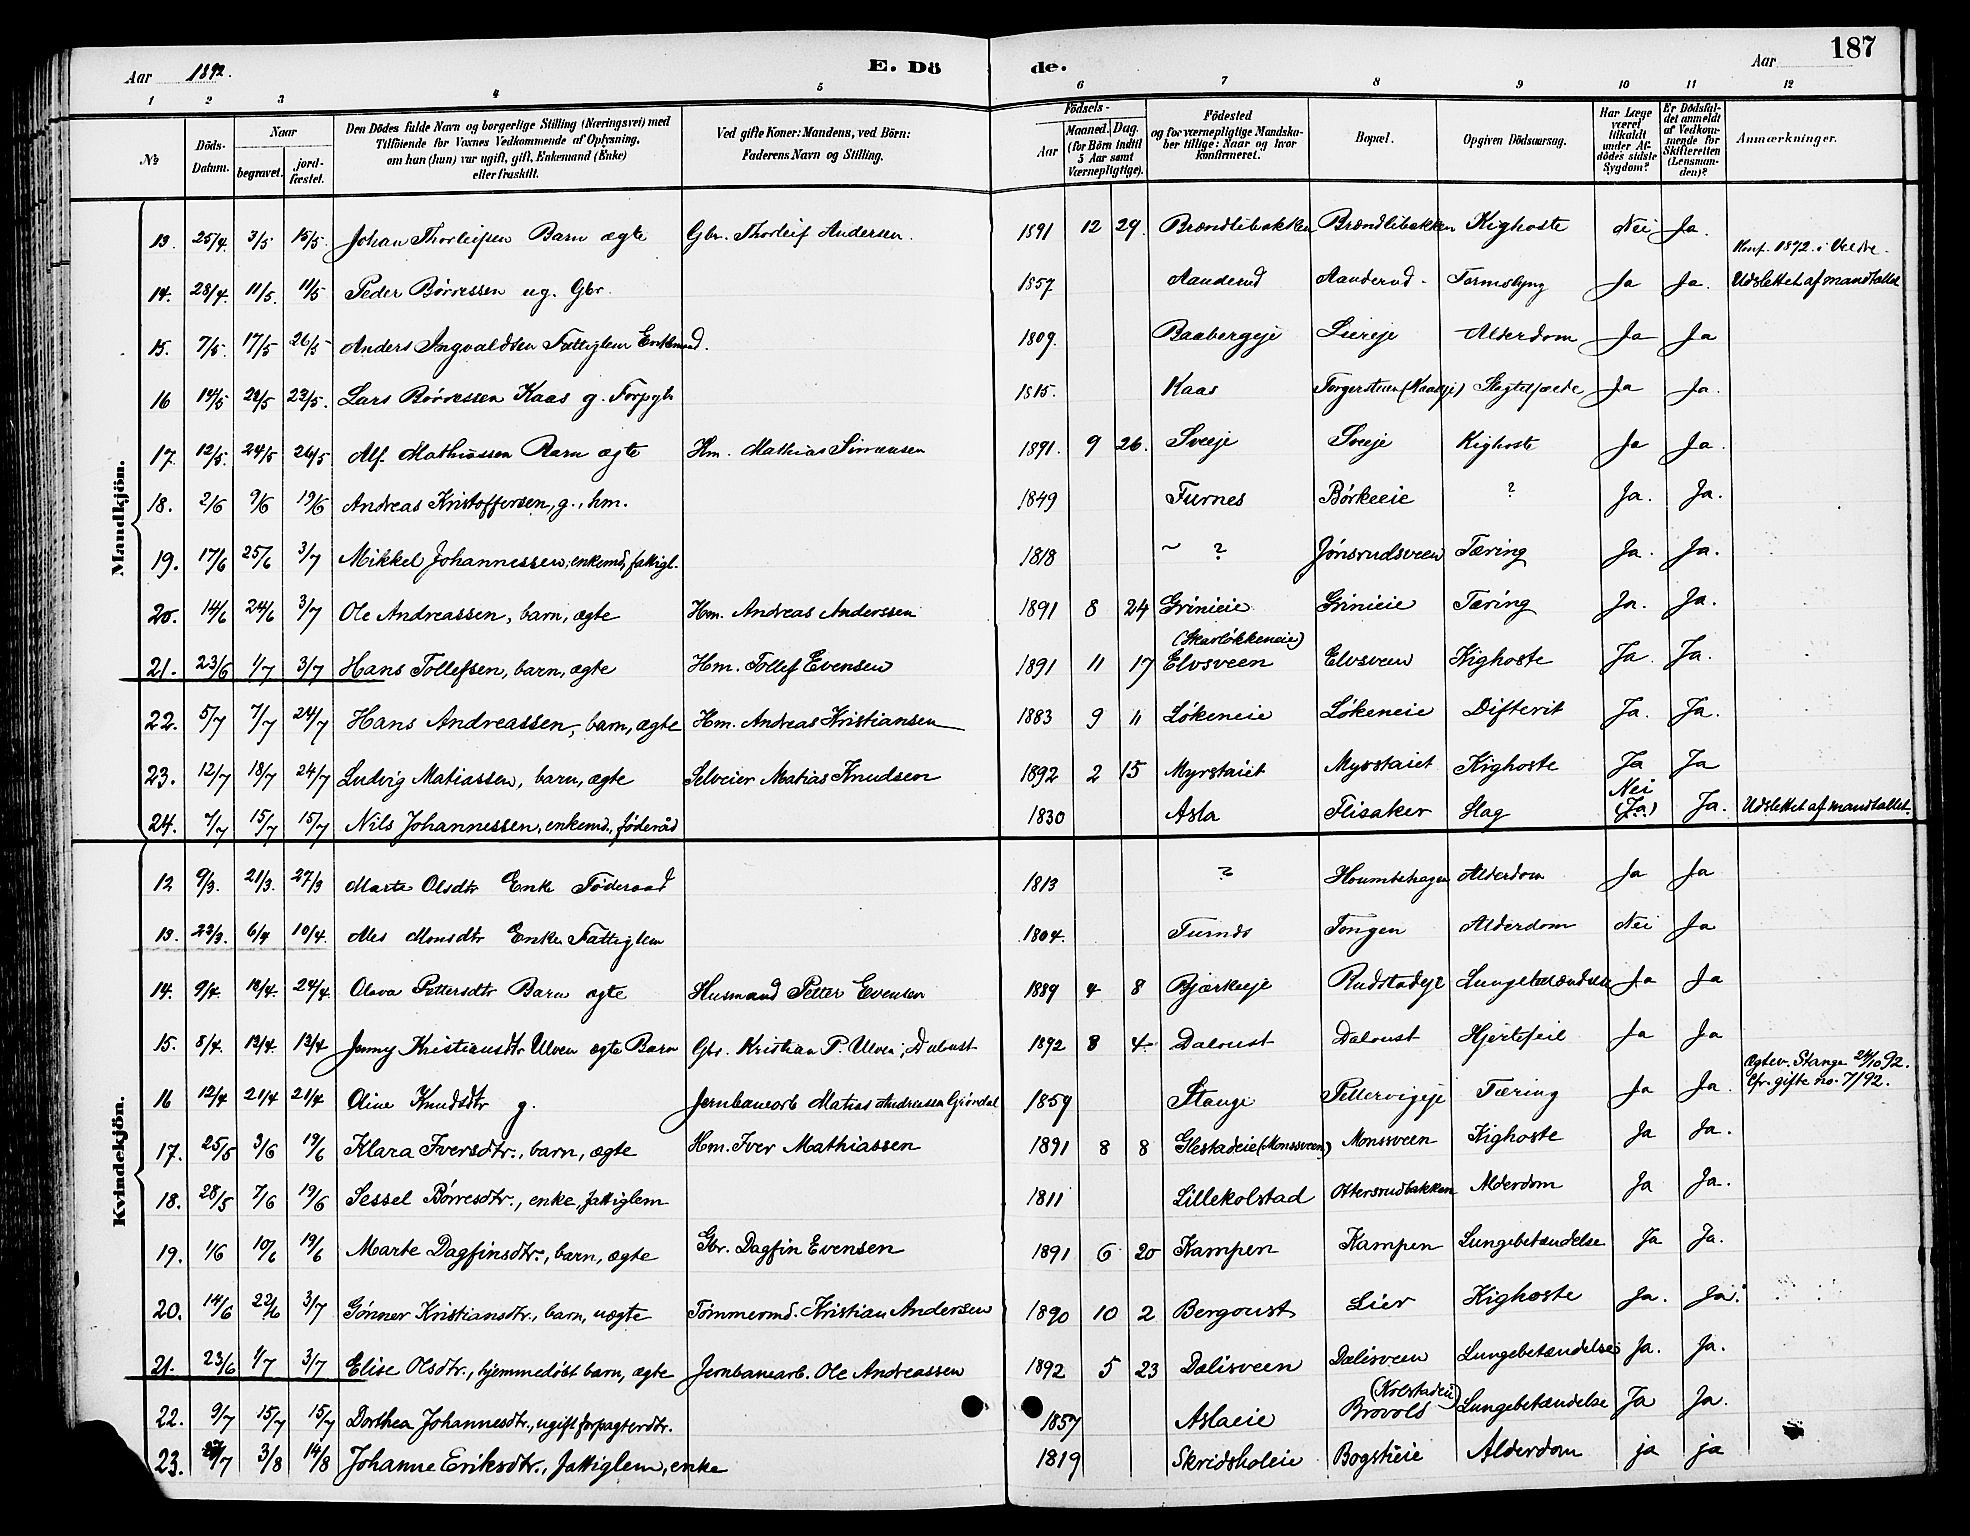 187
Aar 1892. E. Dö de. Aar
1 2 3 4 5 6 7 8 9 10 11 12
No Döds-Datum. Naar begravet. jord-fæstet. Den Dödes fulde Navn og borgerlige Stilling (Næringsvei) med Tilföiende for Voxnes Vedkommende af Oplysning, om han (hun) var ugift, gift, Enkemand (Enke) eller fraskilt. Ved gifte Koner: Mandens, ved Börn: Faderens Navn og Stilling. Födsels- Aar Maaned. Dag. (for Börn indtil 5 Aar samt Værnepligtige). Födested og for værnepligtige Mandskaber tillige: Naar og hvor konfirmeret. Bopæl. Opgiven Dödsaarsag. Har Læge været tilkaldt under Afdödes sidste Sygdom? Er Dödsfaldet anmeldt af Vedkommende for Skifteretten (Lensmanden)? Anmærkninger.
Mandkjön.
13. 25/4. 3/5 15/5. Johan Thorleifsen Barn ægte Gbr. Thorleif Andersen. 1891 12 29. Brændlibakken Brændlibakken Kighoste Nei Ja.
Konf. 1872 i Veldre.
14. 28/4. 11/5. 11/5 Peder Börresen ug. Gbr. 1857 Aanderud Aanderud. Tarmslyng Ja Ja. Udslettet af mandtallet
15. 7/5. 17/5 26/5 Anders Ingvaldsen Fattiglem Enkemand. 1809. Baabergeje Liereje Alderdom Ja Ja
16 14/5 22/5 22/5. Lars Börresen Kaas g. Forpgtr 1815. Kaas Torgersteien (Kaaseje) Ja Ja.
17. 12/5. 24/5 26/5 Alf Mathiassen Barn ægte Hm. Mathias Simensen 1891. 9 26. Sveeje Sveeje Kighoste Ja Ja.
18. 2/6 9/6 19/6 Andreas Kristoffersen, g., hm. 1849 Furnes Börkeeie ? Ja. Ja.
19. 17/6 25/6 3/7 Mikkel Johannessen, enkemd, fattigl. 1818 ~ ? Jönsrudsveen Tæring Ja. Ja.
20. 14/6 24/6 3/7 Ole Andreassen, barn, ægte Hm. Andreas Anderssen 1891 8 24 Grinieie Grinieie Tæring Ja. Ja.
21. 23/6 1/7 3/7 Hans Tollefsen, barn, ægte Hm. Tollef Evensen 1891 11 17 (Skarlökkeneie) Elvsveen Elvsveen Kighoste Ja. Ja.
22. 5/7 7/7 24/7 Hans Andreassen, barn, ægte Hm. Andreas Kristiansen 1883 9 11 Lökeneie Lökeneie Difterit Ja. Ja.
23. 12/7 18/7 24/7 Ludvig Matiassen, barn, ægte Selveier Matias Knudsen 1892 2 15 Myrstaiet Myrstaiet Kighoste Ja Ja
24. 7/7 15/7 15/7 Nils Johannessen, enkemd., föderåd 1830 Asla Flisaker Slag Nei (Ja) Ja. Udslettet af mandtallet.
Kvindekjön.
12 9/3. 21/3. 27/3 Marte Olsdtr Enke Föderaad 1813 ? Houmbehagen Alderdom Ja Ja
13. 22/3. 6/4 10/4. Ales Monsdtr Enke Fattiglem 1804. Furnes Tongen Alderdom Nei Ja
14. 9/4. 18/4. 24/4. Olava Pettersdtr Barn ægte Husmand Petter Evensen 1889 4 8 Bjerkeeje Rudstadeje Lungebetændelse Ja Ja
15. 8/4. 13/4. 13/4 Jenny Kristiansdtr Ulven ægte Barn Gbr. Kristian P. Ulven, Daloust 1892 8 4. Daloust Daloust Hjertefeil Ja Ja
Ægtev. Stange 24/10 92.
16 12/4 21/4 21/4 Oline Knudsdtr g. Jernbanearb Matias Andreasen Gröndal 1859 Stange Pettervigeje Tæring Ja Ja. Cfr. gifte no. 7/92.
17. 25/5 3/6 19/6 Klara Iversdtr., barn, ægte Hm. Iver Mathiassen 1891 8 8 Glestadeie (Monssveen) Monssveen Kighoste Ja Ja.
18. 28/5 7/6 19/6 Sessel Börresdtr., enke, fattiglem 1811 Lillekolstad Ottersrudbakken Alderdom Ja Ja.
19. 1/6 10/6 19/6 Marte Dagfinsdtr., barn, ægte Gbr. Dagfin Evensen 1891 6 20 Kampen Kampen Lungebetændelse Ja Ja.
20. 14/6 22/6 3/7 Gönner Kristiansdtr., barn, uægte Tömmermd. Kristian Andersen 1890 10 2 Bergoust Lier Kighoste Ja. Ja.
21. 23/6 1/7 3/7 Elise Olsdtr., hjemmedöbt barn, ægte Jernbanearb. Ole Andreassen 1892 5 23 Dælisveen Dælisveen Lungebetændelse Ja. Ja.
22. 9/7 15/7 15/7 Dorthea Johannesdtr., ugift forpagterdtr. 1857 Aslaeie (Kolstadeie) Brovols Lungebetændelse Ja Ja.
23. 27/7 3/8 14/8 Johanne Eriksdtr., fattiglem, enke 1819 Skridsholeie Bogstieie Alderdom ja ja